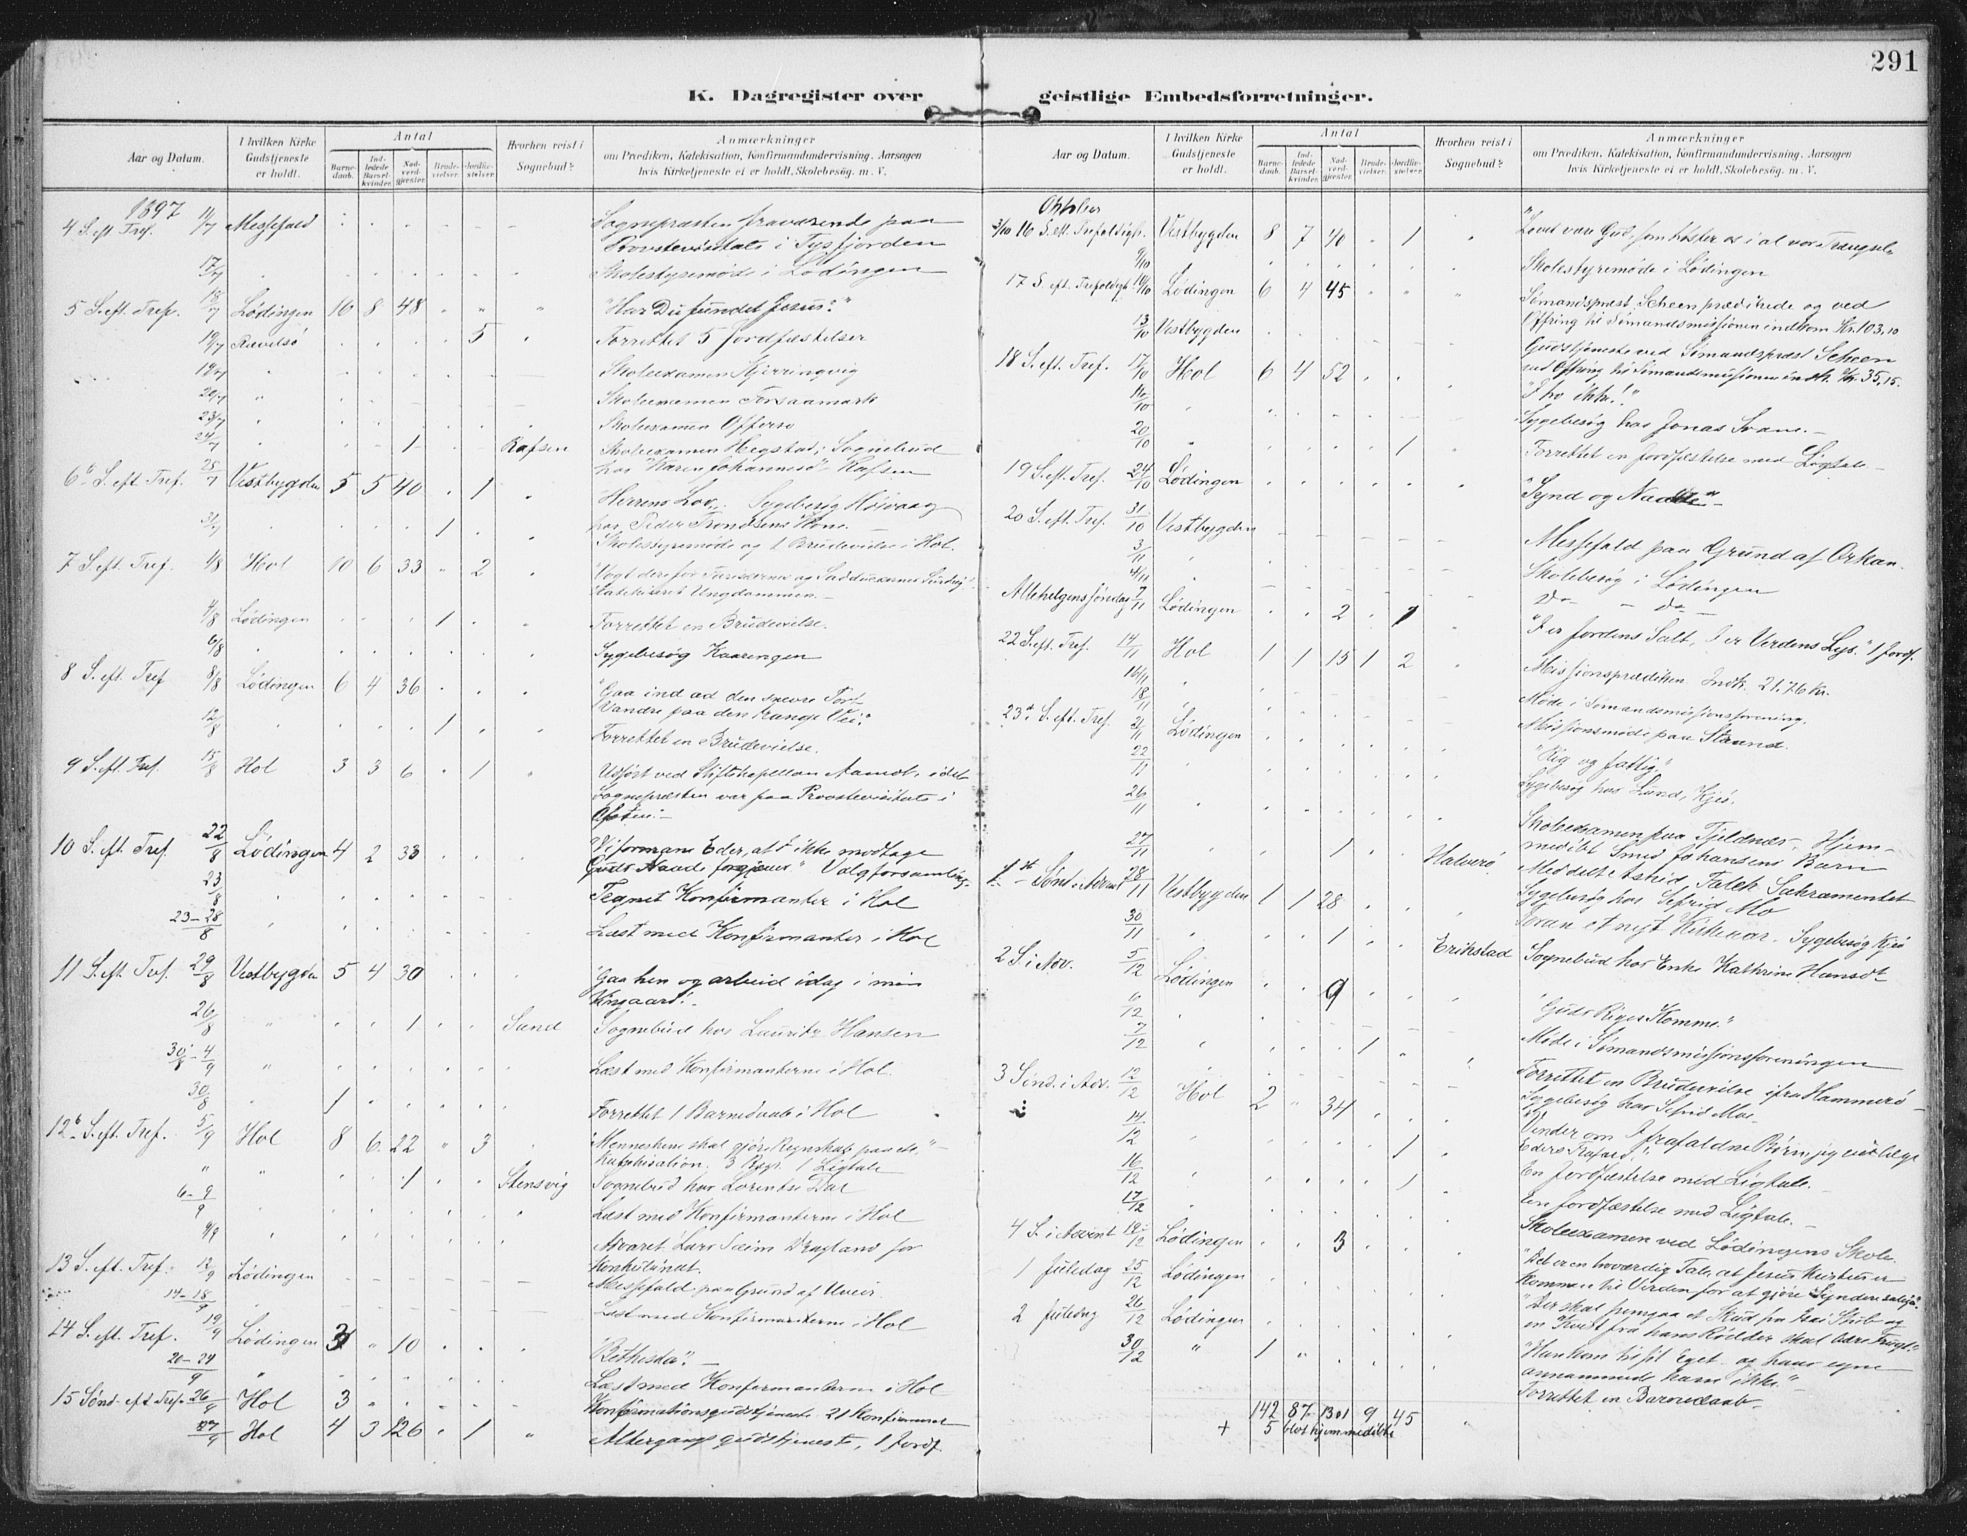 291
K. Dagregister over geistlige Embedsforretninger.
Aar og Datum.
I hvilken Kirke Gudstjeneste er holdt.
Antal
Barnedaab.
Indledede Barselkvinder.
Nadverdgjester.
Brudevielser.
Jordfæstelser.
Hvorhen reist i Sognebud?
Anmærkninger
om Prædiken, Katekisation, Konfirmandundervisning. Aarsagen
hvis Kirketjeneste ei er holdt. Skolebesøg. m. V.
1897
4 S. eft Tref. 11/7 Messefald Sognepræsten fraværende paa
Provstevisitats i Tysfjorden
17/7 Skolestyremøde i Lødingen
5 S. eft. Tref. 18/7 Lødingen 10 8 48 "Har Du fundet Jesus?"
19/7 5 Forrettet 5 Jordfæstelser
19/7 Skoleexamen Kjerringvig
20/7 Skoleexamen
23/7 Skoleexamen Offersø
24/7 1 Rafsen Skoleexamen Hegstad; Sognebud
hos Karen Johannesd. Rafsen
6 S. eft Tref. 25/7 Vestbygden 5 5 40 1 Herrens Lov. Sygebesøg
hos Peder Trondsens Kone
31/7 1 Skolestyremøde og 1 Brudevielse i Hol.
7 S. eft. Tref. 1/8 Hol 10 6 33 2
Ungdommen.
4/8 Lødingen 1 Forrettet en Brudevielse.
6/8 Sygebesøg Kaaringen
8 S. eft. Tref 8/8 Lødingen 6 4 36 "Gaa ind ad den snevre Port
Vandre paa den trange Vei."
12/8 1 Forrettet en Brudevielse.
9 S. eft. Tref. 15/8 Hol 3 3 6 1 Udført ved Stiftskapellan Aamodt, idet
Sognepræsten var paa Provstevisitats i
Ofoten.
10 S. eft. Tref. 22/8 Lødingen 4 2 33 Vi formane Eder, at I ikke modtage
Guds Naade forgjæves" Valgforsamling.
23/8 Tegnet Konfirmanter i Hol
23-28/8 Læst med Konfirmanter i Hol
11 S. eft. Tref. 29/8 Vestbygden 5 4 30 "Gaa hen og arbeid idag i min
Vingaard."
26/8 1 Sund Sognebud hos Lauritz Hansen
30/8-4/9 Læst med Konfirmanterne i Hol.
30/8 1 Forrettet 1 Barnedaab i Hol
12 S. eft. Tref. 5/9 Hol 8 6 22 3 Mennesken skal gjøre Regnskab
Katekisation. 1 Ligtale
1 Stensvig Sognebud hos Lorentse Dal
6-9/9 Læst med Konfirmanterne i Hol
9/9 Advaret Lars for
Konkubinat.
13 S. eft. Tref. 12/9 Lødingen Messefald paa Grund af Uveir
14-18/9 Læst med Konfirmanterne i Hol
14 S. eft. Tref. 19/9 Lødingen 10 "Bethesda".
20-24/9 Læst med Konfirmanterne i Hol
15 Sønd. eft Tref. 26/9 Hol 3 Konfirmationsgudstjeneste. 21 Konfirmered
27/9 Hol 4 3 126 1 Altergangsgudstjeneste, 1 Jordf.
Aar og Datum.
I hvilken Kirke Gudstjeneste er holdt.
Antal
Barnedaab.
Indledede Barselkvinder.
Nadverdgjester.
Brudevielser.
Jordfæstelser.
Hvorhen reist i Sognebud?
Anmærkninger
om Prædiken, Katekisation, Konfirmandundervisning. Aarsagen
hvis Kirketjeneste ei er holdt. Skolebesøg. m. V.
Oktober
3/10 16 S. eft. Trefoldigh. Vestbygden 8 7 40 1 "Lovet være Gud, som trøster os i al vor Trængsel"
9/10 Skolestyremøde i Lødingen
17 S. eft. Trefoldigh. 10/10 Lødingen 6 4 45 Sømandspræst Scheen prædikede og ved
Offring til Sømandsmissionen indkom Kr. 103,10
13/10 Vestbygden Gudstjeneste ved Sømandspræst Scheen
ved Offring til Sømandsmissionen indk. Kr. 35,15.
18 S. eft. Tref. 17/10 Hol 6 4 52
Sygebesøg hos Jonas
20/10 1 Forrettet en Jordfæstelse med Ligtale
19 S. eft. Tref. 24/10 Lødingen "Synd og Naade"
20 S. eft. Tref. 31/10 Vestbygden Messefald paa Grund af Orkan.
3/11 Skolebesøg i Lødingen
4/11 Do - Do
Allehelgenssøndag 7/11 Lødingen 2 1 "I er Jordens Salt, I er Verdens Lys." 1 Jordf.
22 S. eft. Tref. 14/11 Hol 1 1 15 1 2 Missionsprædiken Indk. 21.76 Kr.
16/11 Møde i Sømandsmissionsforening.
18/11 Missionsmøde paa Strand.
23 S. eft. Tref. 21/11 Lødingen "Rig og fattig"
22/11 Sygebesøg hos Lund, Kjeø.
26/11 Skoleexamen paa Fjeldnæs. Hjem-
medøbt Smed Johansens Barn
27/11 1 Halverø. Meddelt Astrid Sakramentet
Sygebesøg hos Sefrid Mo
1ste Sønd. i Advent 28/11 Vestbygden 1 1 28
30/11 1 Erikstad Sognebud hos Enke Kathrine Hansdt
2 S. i Adv. 5/12 Lødingen 9 "Guds Riges Komme."
6/12 Møde i Sømandsmissionsforeningen
7/12 1 Forrettet en Brudevielse ifra Hammerø
Sygebesøg hos Sefrid Mo.
3 Sønd. i Adv. 12/12 Hol 2 34 Vender om I frafaldne Børn, jeg vil læge
Eders Frafald."
14/12 1 En Jordfæstelse med Ligtale.
16/12 1 En Jordfæstelse med Ligtale.
17/12 Skoleexamen ved Lødingens Skole
4 S. i Advent 19/12 Lødingen 3 "Det er en troværdig Tale, at Jesus Kristus er
kommen til Verden for at gjøre Syndere salige."
1 Juledag 25/12 Lødingen "Der skal fremgaa et Skud fra Isai Stub og
en Kvist fra hans Rødder skal bære Frugt."
2 Juledag 26/12 Lødingen "Han kom til sit Eget og hans egne
annammede ham ikke."
30/12 1 Forrettet en Barnedaab.
142 87 1301 9 45
+ 5 blot hjemmedøbte